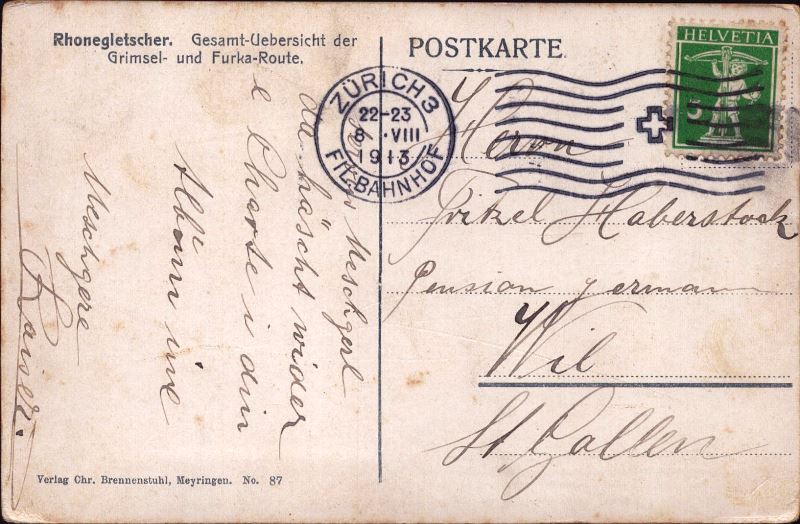 Rhonegletscher. Gesamt-Uebersicht der
Grimsel- und Furka-Route.
POSTKARTE.
HELVETIA
5
ZÜRICH 3
22-23
8.VIII
1913
FIL.BAHNHOF
Herrn
Fritzel Haberstock
Pension German
Wil
St. Gallen
Meschgerl
da häscht wider
e Charte i din
Album ine
Meschgere
Kaiser.
Verlag Chr. Brennenstuhl, Meyringen. No. 87